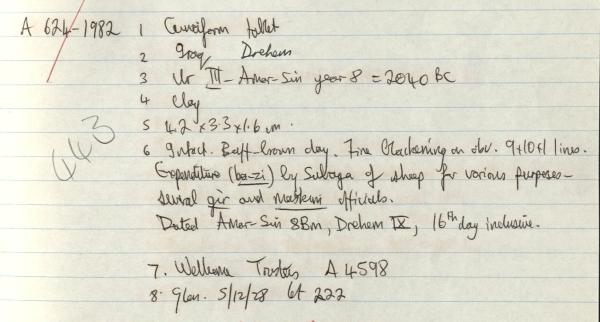 A 624-1982 1 Cuneiform tablet
2 Iraq, Drehem
3 Ur III - Amar-Sin year 8 = 2040 BC
4 Clay
5 4.2 x 3.3 x 1.6 cm.
6 Intact. Buff-brown clay. Fire blackening on obv. 9+10+1 lines.
Expenditure (ba-zi) by of sheep for various purposes-
several gìr and maškim officials.
Dated Amar-Sin 8Bm, Drehem IX, 16th day inclusive.
443
7. Wellcome Trustees A 4598
8. Glen. 5/12/28 lot 222